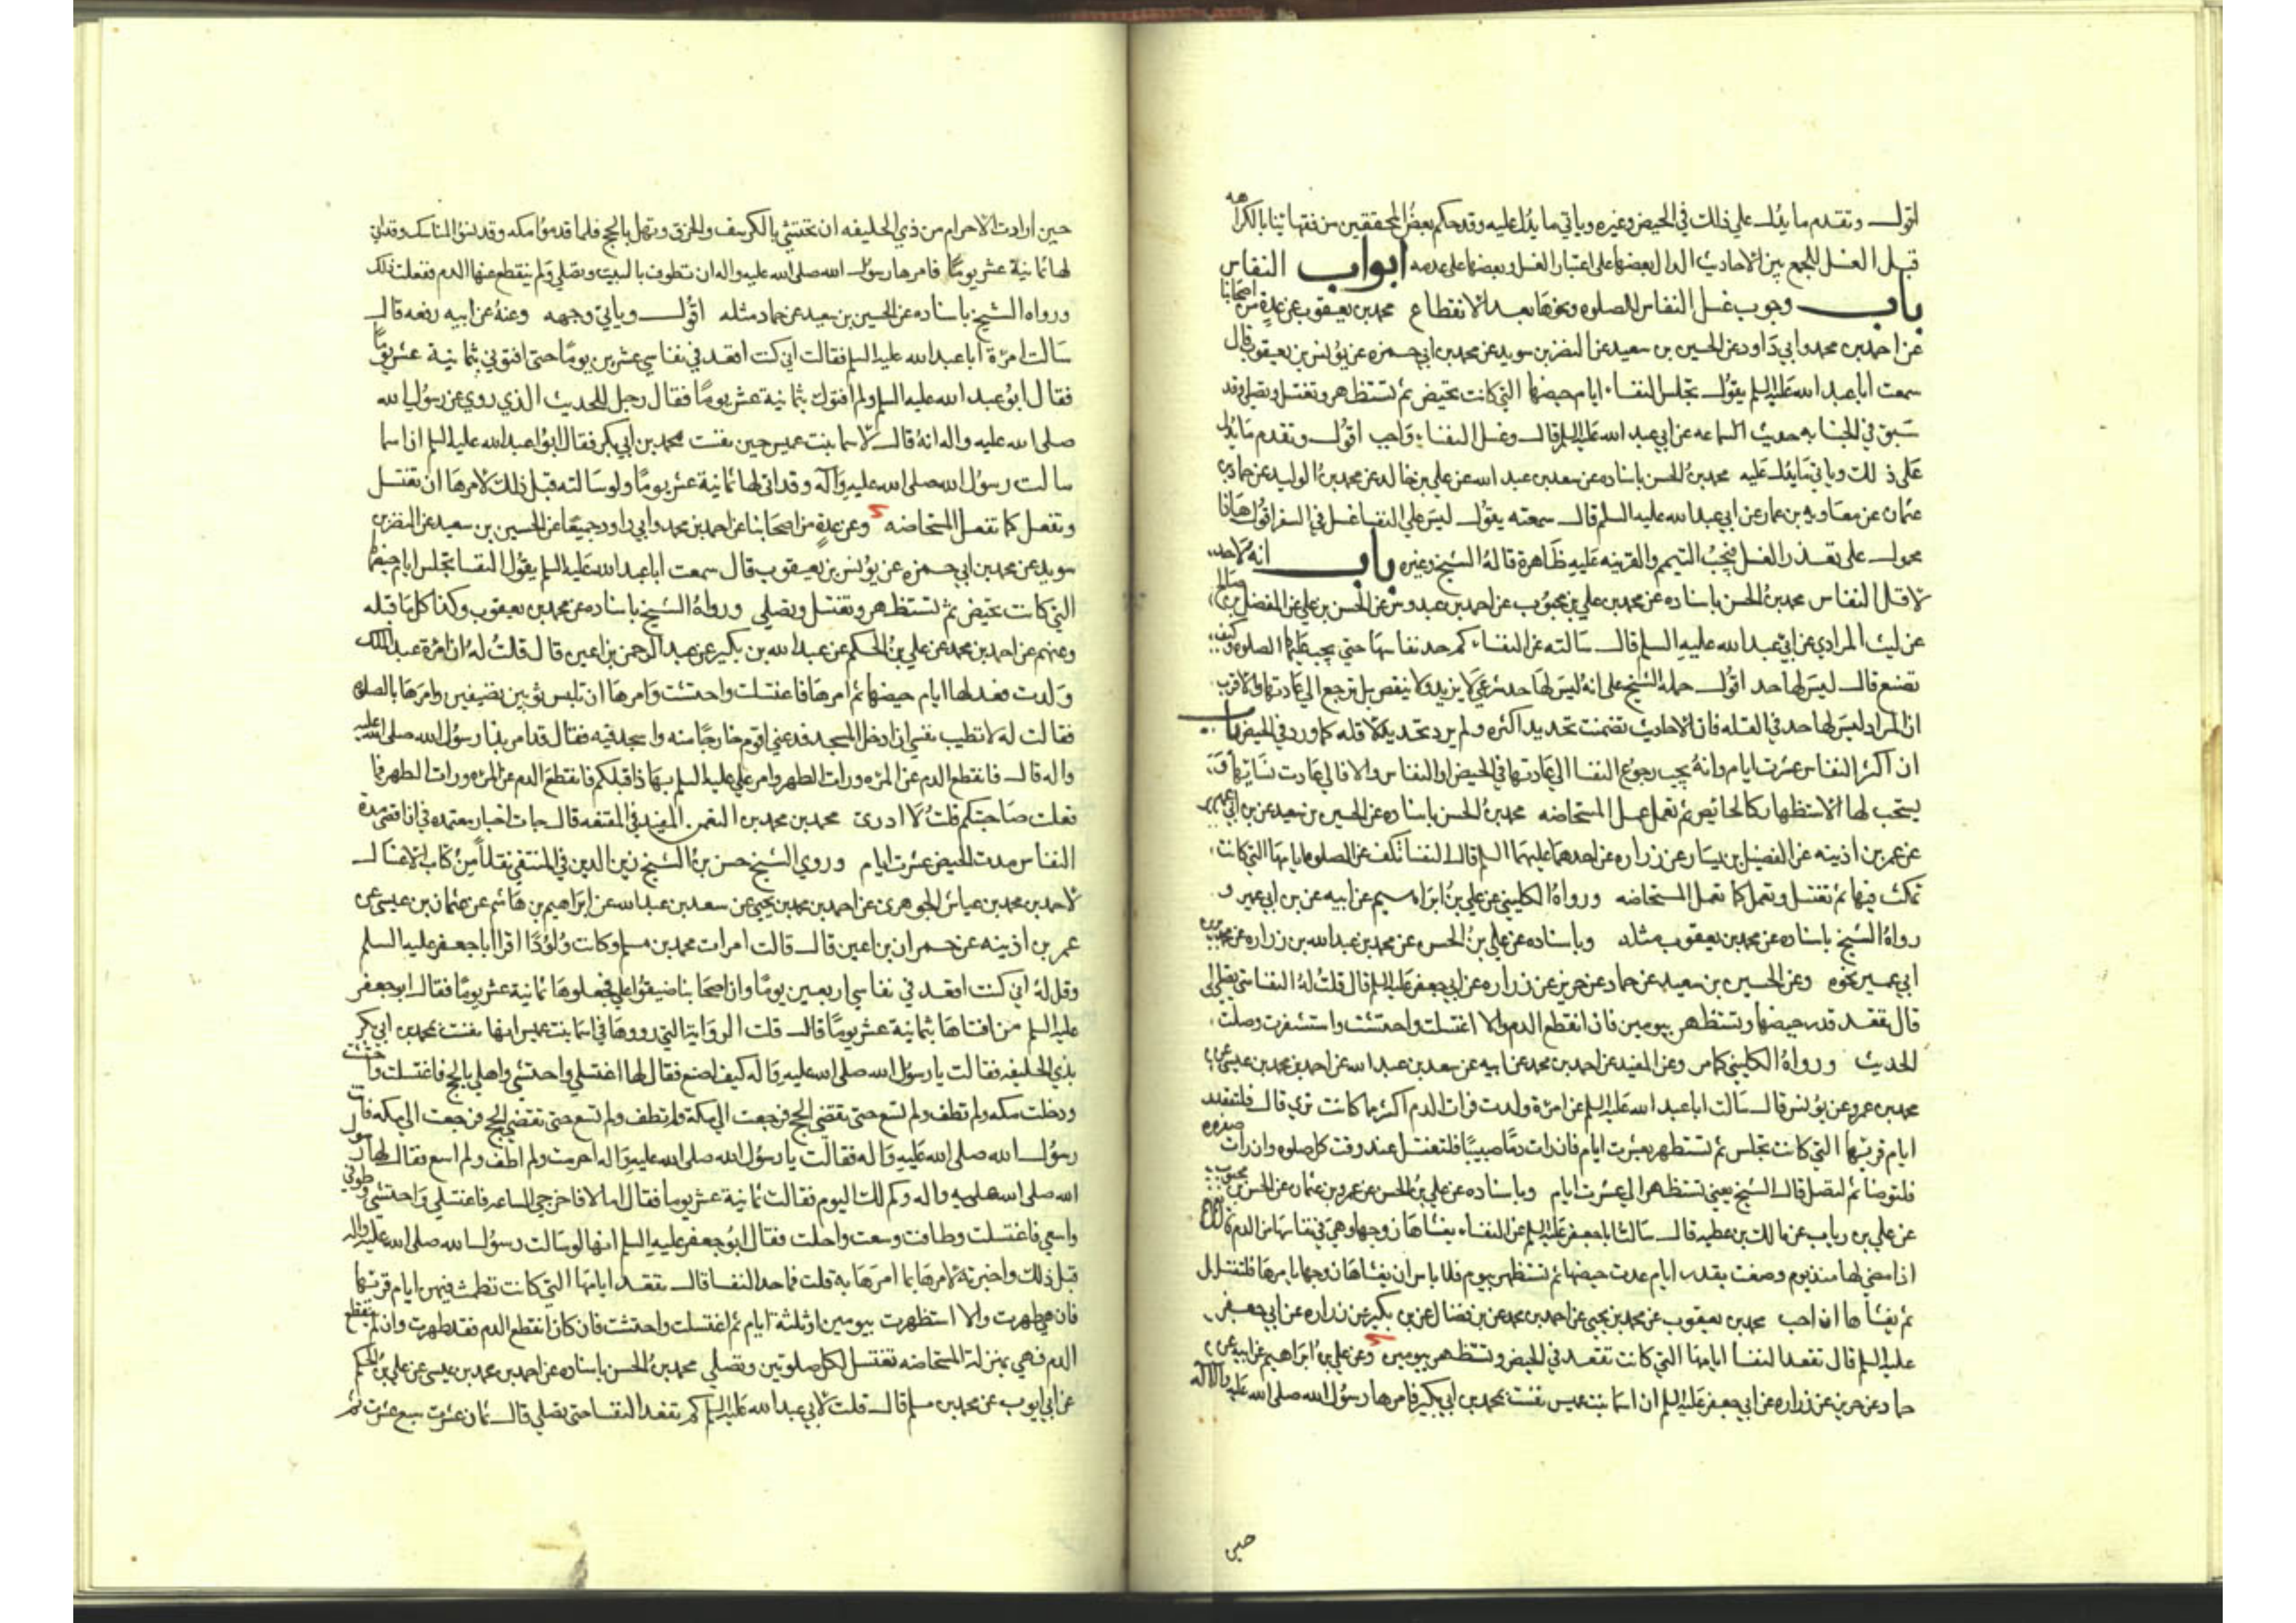 اقول وتقدم ما يدل على ذلك في الحيض وغيره وياتي ما يدل عليه وقد حكم بعض المحققين من فقهائنا بالكراهه
قبل الغسل للجمع بين الاحاديث الدال بعضها على اعتبار الغسل وبعضها على عدمه ابواب النفاس
باب وجوب غسل النفاس للصلوه ونحوها بعد الانقطاع محمد بن يعقوب عن عدة من اصحابنا
عن احمد بن محمد وابي داود عن الحسين بن سعيد عن النضر بن سويد عن محمد بن ابي حمزه عن يونس بن يعقوب قال
سمعت ابا عبد الله عليه السلم يقول تجلس النفساء ايام حيضها التي كانت تحيض ثم تستظهر وتغتسل وتصلي وقد
سبق في الجنابه حديث السماعه عن ابي عبد الله عليه السلم قال وغسل النفساء واجب اقول وتقدم ما يدل
على ذلك وياتي ما يدل عليه محمد بن الحسن باسناده عن سعد بن عبد الله عن علي بن خالد عن محمد بن الوليد عن حماد بن
عثمان عن معاويه بن عمار عن ابي عبد الله عليه السلم قال سمعته يقول ليس على النفسا غسل في السفر اقول هذا
محمول على تعذر الغسل فيجب التيمم والقرينه عليه ظاهرة قاله الشيخ وغيره باب انه لا حد
لاقل النفاس محمد بن الحسن باسناده عن محمد بن علي بن محبوب عن احمد بن عبدوس عن الحسن بن علي عن المفضل بن صالح
عن ليث المرادي عن ابي عبد الله عليه السلم قال سالته عن النفساء كم حد نفاسها حتى يجب عليها الصلوه وكيف
تصنع قال ليس لها حد اقول حمله الشيخ على انه ليس لها حد شرعي لا يزيد ولا ينقص بل ترجع الى عادتها والاقرب
ان المراد ليس لها حد في القله فان الاحاديث تضمنت تحديد اكثره ولم يرد تحديد لاقله كما ورد في الحيض باب
ان اكثر النفاس عشرت ايام وانه يجب رجوع النفسا الى عادتها في الحيض او النفاس والا فالى عادت نسائها و
يستحب لها الاستظهار كالحائض ثم تعمل عمل المستحاضه محمد بن الحسن باسناده عن الحسين بن سعيد عن بن ابي عمير
عن عمر بن اذينه عن الفضيل بن يسار عن زراره عن احدهما عليهما السلم قال النفسا تكف عن الصلوه ايامها التي كانت
تمكث فيها ثم تغتسل وتعمل كما تعمل المستحاضه ورواه الكليني عن علي بن ابراهيم عن ابيه عن بن ابي عمير و
رواه الشيخ باسناده عن محمد بن يعقوب مثله وباسناده عن علي بن الحسن عن محمد بن عبد الله بن زراره عن محمد بن
ابي عمير نحوه وعن الحسين بن سعيد عن حماد عن حريز عن زراره عن ابي جعفر عليه السلم قال قلت له النفسا متى تصلي
قال تقعد قدر حيضها وتستظهر بيومين فان انقطع الدم والا اغتسلت واحتشت واستثفرت وصلت
الحديث ورواه الكليني كما مر وعن المفيد عن احمد بن محمد عن ابيه عن سعد بن عبد الله عن احمد بن محمد بن عيسى عن
محمد بن عمرو عن يونس قال سالت ابا عبد الله عليه السلم عن امرة ولدت فرات الدم اكثر مما كانت ترى قال فلتقعد
ايام قرئها التي كانت تجلس ثم تستظهر بعشرت ايام فان رات دما صبيبا فلتغتسل عند وقت كل صلوه وان رات صفره
فلتوضا ثم لتصل قال الشيخ يعني تستظهر الى عشرت ايام وباسناده عن علي بن الحسن عن عمرو بن عثمان عن الحسن بن محبوب
عن علي بن رياب عن مالك بن عطيه قال سالت ابا جعفر عليه السلم عن النفساء يغشاها زوجها وهي في نفاسها من الدم قال نعم
اذا مضى لها منذ يوم وضعت بقدر ايام عدت حيضها ثم تستظهر بيوم فلا باس ان يغشاها زوجها يامرها فلتغتسل
ثم يغشاها ان احب محمد بن يعقوب عن محمد بن يحيى عن احمد بن محمد عن بن فضال عن بن بكير عن زراره عن ابي جعفر
عليه السلم قال تقعد النفسا ايامها التي كانت تقعد في الحيض وتستظهر بيومين وعن علي بن ابراهيم عن ابيه عن
حماد عن حريز عن زراره عن ابي جعفر عليه السلم ان اسما بنت عميس نفست بمحمد بن ابي بكر فامرها رسول الله صلى الله عليه واله
حين
حين ارادت الاحرام من ذي الحليفه ان تحتشي بالكرسف والخرق وتهل بالحج فلما قدموا مكه وقد نسكوا المناسك وقد اتى
لها ثمانية عشر يوما فامرها رسول الله صلى الله عليه واله ان تطوف بالبيت وتصلي ولم ينقطع عنها الدم ففعلت ذلك
ورواه الشيخ باسناده عن الحسين بن سعيد عن حماد مثله اقول وياتي وجهه وعنه عن ابيه رفعه قال
سالت امرة ابا عبد الله عليه السلم فقالت اني كنت اقعد في نفاسي عشرين يوما حتى افتوني بثمانية عشر يوما
فقال ابو عبد الله عليه السلم ولم افتوك بثمانية عشر يوما فقال رجل للحديث الذي روي عن رسول الله
صلى الله عليه واله انه قال لاسما بنت عميس حين نفست بمحمد بن ابي بكر فقال ابو عبد الله عليه السلم ان اسما
سالت رسول الله صلى الله عليه وآله وقد اتى لها ثمانية عشر يوما ولو سالته قبل ذلك لامرها ان تغتسل
وتفعل كما تفعل المستحاضه وعن عدة من اصحابنا عن احمد بن محمد وابي داود جميعا عن الحسين بن سعيد عن النضر بن
سويد عن محمد بن ابي حمزه عن يونس بن يعقوب قال سمعت ابا عبد الله عليه السلم يقول النفسا تجلس ايام حيضها
التي كانت تحيض ثم تستظهر وتغتسل وتصلي ورواه الشيخ باسناده عن محمد بن يعقوب وكذا كل ما قبله
وعنهم عن احمد بن محمد عن علي بن الحكم عن عبد الله بن بكير عن عبد الرحمن بن اعين قال قلت له ان امرة عبد الملك
ولدت فعد لها ايام حيضها ثم امرها فاغتسلت واحتشت وامرها ان تلبس ثوبين نضيفين وامرها بالصلوه
فقالت له لا تطيب نفسي ان ادخل المسجد فدعني اقوم خارجا منه واسجد فيه فقال قد امر بذا رسول الله صلى الله عليه
واله قال فانقطع الدم عن المره ورات الطهر وامر علي عليه السلم بهذا قبلكم فانقطع الدم عن المره ورات الطهر فما
فعلت صاحبتكم قلت لا ادرى محمد بن محمد بن النعمن المفيد في المقنعه قال جات اخبار معتمده في ان اقصى مدة
النفاس مدت الحيض عشرت ايام وروي الشيخ حسن بن الشيخ زين الدين في المنتقى نقلا من كتاب الاغسال
لاحمد بن محمد بن عياش الجوهرى عن احمد بن محمد بن يحيى عن سعد بن عبد الله عن ابراهيم بن هاشم عن عثمان بن عيسى عن
عمر بن اذينه عن حمران بن اعين قال قالت امرات محمد بن مسلم وكانت ولودا اقرا ابا جعفر عليه السلم
وقل له اني كنت اقعد في نفاسي اربعين يوما وان اصحابنا ضيقوا علي فجعلوها ثمانية عشر يوما فقال ابو جعفر
عليه السلم من افتاها بثمانية عشر يوما قال قلت الرواية التي رووها في اسما بنت عميس انها نفست بمحمد بن ابي بكر
بذي الحليفه فقالت يا رسول الله صلى الله عليه واله كيف اصنع فقال لها اغتسلي واحتشي واهلي بالحج فاغتسلت واحتشت
ودخلت مكه ولم تطف ولم تسع حتى يقضى الحج فرجعت الى مكة ولم تطف ولم تسع حتى تقضي الحج فرجعت الى مكه فاتت
رسول الله صلى الله عليه واله فقالت يا رسول الله صلى الله عليه واله احرمت ولم اطف ولم اسع فقال لها رسول
الله صلى الله عليه واله وكم لك اليوم فقالت ثمانية عشر يوما فقال اما لا فاخرجي الساعه فاغتسلي واحتشي وطوفي
واسعي فاغتسلت وطافت وسعت واحلت فقال ابو جعفر عليه السلم انها لو سالت رسول الله صلى الله عليه واله
قبل ذلك واخبرته لامرها بما امرها به قلت فما حد النفسا قال تقعد ايامها التي كانت تطمث فيهن ايام قرئها
فان هي طهرت والا استظهرت بيومين او ثلثة ايام ثم اغتسلت واحتشت فان كان انقطع الدم فقد طهرت وان لم ينقطع
الدم فهي بمنزلة المستحاضه تغتسل لكل صلوتين وتصلي محمد بن الحسن باسناده عن احمد بن محمد بن عيسى عن علي بن الحكم
عن ابي ايوب عن محمد بن مسلم قال قلت لابي عبد الله عليه السلم كم تقعد النفسا حتى تصلي قال ثمان عشرت سبع عشرت ثم